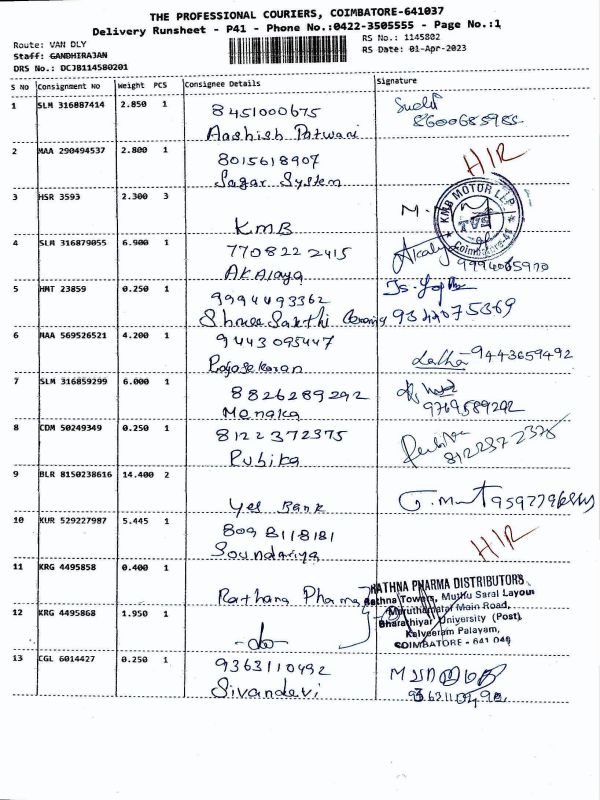 THE PROFESSIONAL COURIERS, COIMBATORE-641037
Delivery Runsheet - P41 - Phone No.:0422-3505555 - Page No.:1
Route: VAN DLY
RS No.: 1145802
Staff: GANDHIRAJAN
RS Date: 01-Apr-2023
DRS No.: DCJB114580201
S No Consignment No Weight PCS Consignee Details Signature
1 SLM 316887414 2.850 1 8451000675
8600685985
Aashish Patwari
2 MAA 290494537 2.800 1 8015618907 H/R
Sagar System
3 HSR 3593 2.300 3
KMB
KMB MOTOR LLP
TVS
Coimbatore-41
4 SLM 316879055 6.900 1 7708222415
AKAlaya 9994065970
5 HMT 23859 0.250 1 9994493362
Shree Sakthi 9344075369
6 MAA 569526521 4.200 1 9443095447
Rajasekaran Latha 9443659492
7 SLM 316859299 6.000 1 8826289292
Menaka 9769589292
8 CDM 50249349 0.250 1 8122372375
Rubika 8122372375
9 BLR 8150238616 14.400 2
Yes Bank
10 KUR 529227987 5.445 1 H/R
Soundariya
11 KRG 4495858 0.400 1
Rathana Pharma
RATHNA PHARMA DISTRIBUTORS
Rathna Towers, Muthu Saral Layout
Maruthamalai Main Road,
Bharathiyar University (Post)
Kalveeram Palayam,
COIMBATORE - 641 046
12 KRG 4495868 1.950 1
-do-
13 CGL 6014427 0.250 1 9363110492
Sivandevi